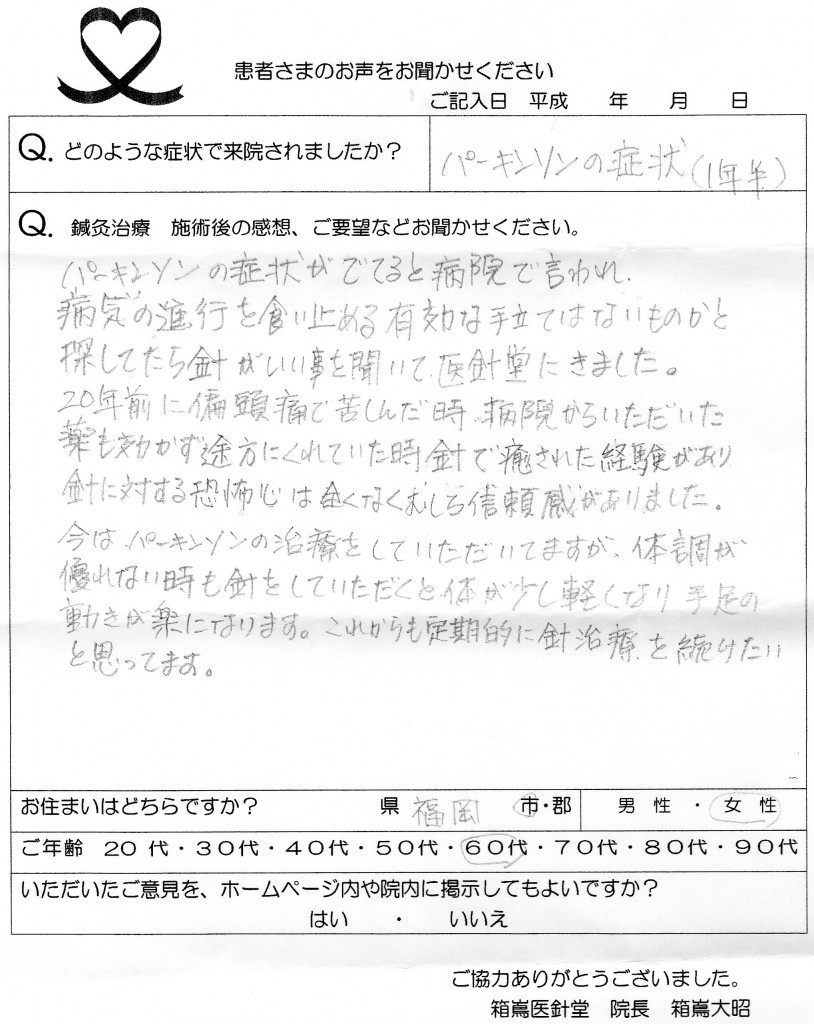 患者さまのお声をお聞かせください
ご記入日 平成 年 月 日
Q. どのような症状で来院されましたか?
パーキンソンの症状(1年半)
Q. 鍼灸治療 施術後の感想、ご要望などお聞かせください。
パーキンソンの症状がでてると病院で言われ、
病気の進行を食い止める有効な手立てはないものかと
探してたら針がいい事を聞いて、医針堂にきました。
20年前に偏頭痛で苦しんだ時、病院からいただいた
薬も効かず途方にくれていた時、針で癒された経験があり
針に対する恐怖心は全くなくむしろ信頼感がありました。
今は、パーキンソンの治療をしていただいてますが、体調が
優れない時も針をしていただくと体が少し軽くなり手足の
動きが楽になります。これからも定期的に針治療を続けたい
と思ってます。
お住まいはどちらですか? 県 福岡 市・郡 男性・女性
ご年齢 20代・30代・40代・50代・60代・70代・80代・90代
いただいたご意見を、ホームページ内や院内に掲示してもよいですか?
はい ・ いいえ
ご協力ありがとうございました。
箱嶌医針堂 院長 箱嶌大昭